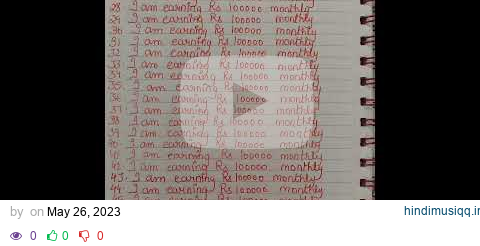 28. I am earning Rs 100000 monthly
29. I am earning Rs 100000 monthly
30. I am earning Rs 100000 monthly
31. I am earning Rs 100000 monthly
32. I am earning Rs 100000 monthly
33. I am earning Rs 100000 monthly
34. I am earning Rs 100000 monthly
35. I am earning Rs 100000 monthly
36. I am earning Rs 100000 monthly
37. I am earning Rs 100000 monthly
38. I am earning Rs 100000 monthly
39. I am earning Rs 100000 monthly
40. I am earning Rs 100000 monthly
41. I am earning Rs 100000 monthly
42. I am earning Rs 100000 monthly
43. I am earning Rs 100000 monthly
44. I am earning Rs 100000 monthly
by on May 26, 2023
hindimusiqq.in
0 0 0